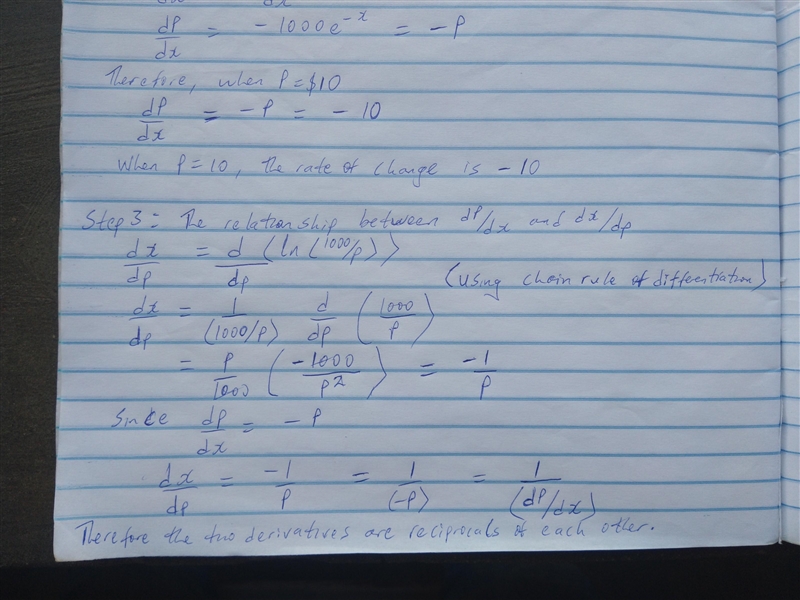 dx
dp/dx = -1000e^-x = -P
Therefore, when P=$10
dp/dx = -P = -10
When P=10, the rate of change is -10
Step 3: The relationship between dp/dx and dx/dp
dx/dp = d/dp (ln(1000/p))
(Using chain rule of differentiation)
dx/dp = 1/(1000/p) d/dp (1000/p)
= P/1000 (-1000/P²) = -1/P
Since dp/dx = -P
dx/dp = -1/P = 1/(-P) = 1/(dp/dx)
Therefore the two derivatives are reciprocals of each other.